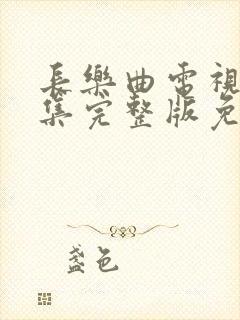 長樂曲電視
集完整版免
盞色